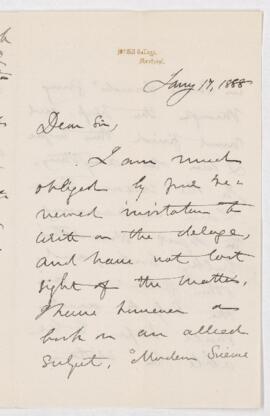 McGill College,
Montreal.
Jany 17, 1888
Dear Sir,
I am much
obliged by your re-
newed invitation to
write on the deluge,
and have not lost
sight of the matter.
I have however a
book on an allied
subject, "Modern Science